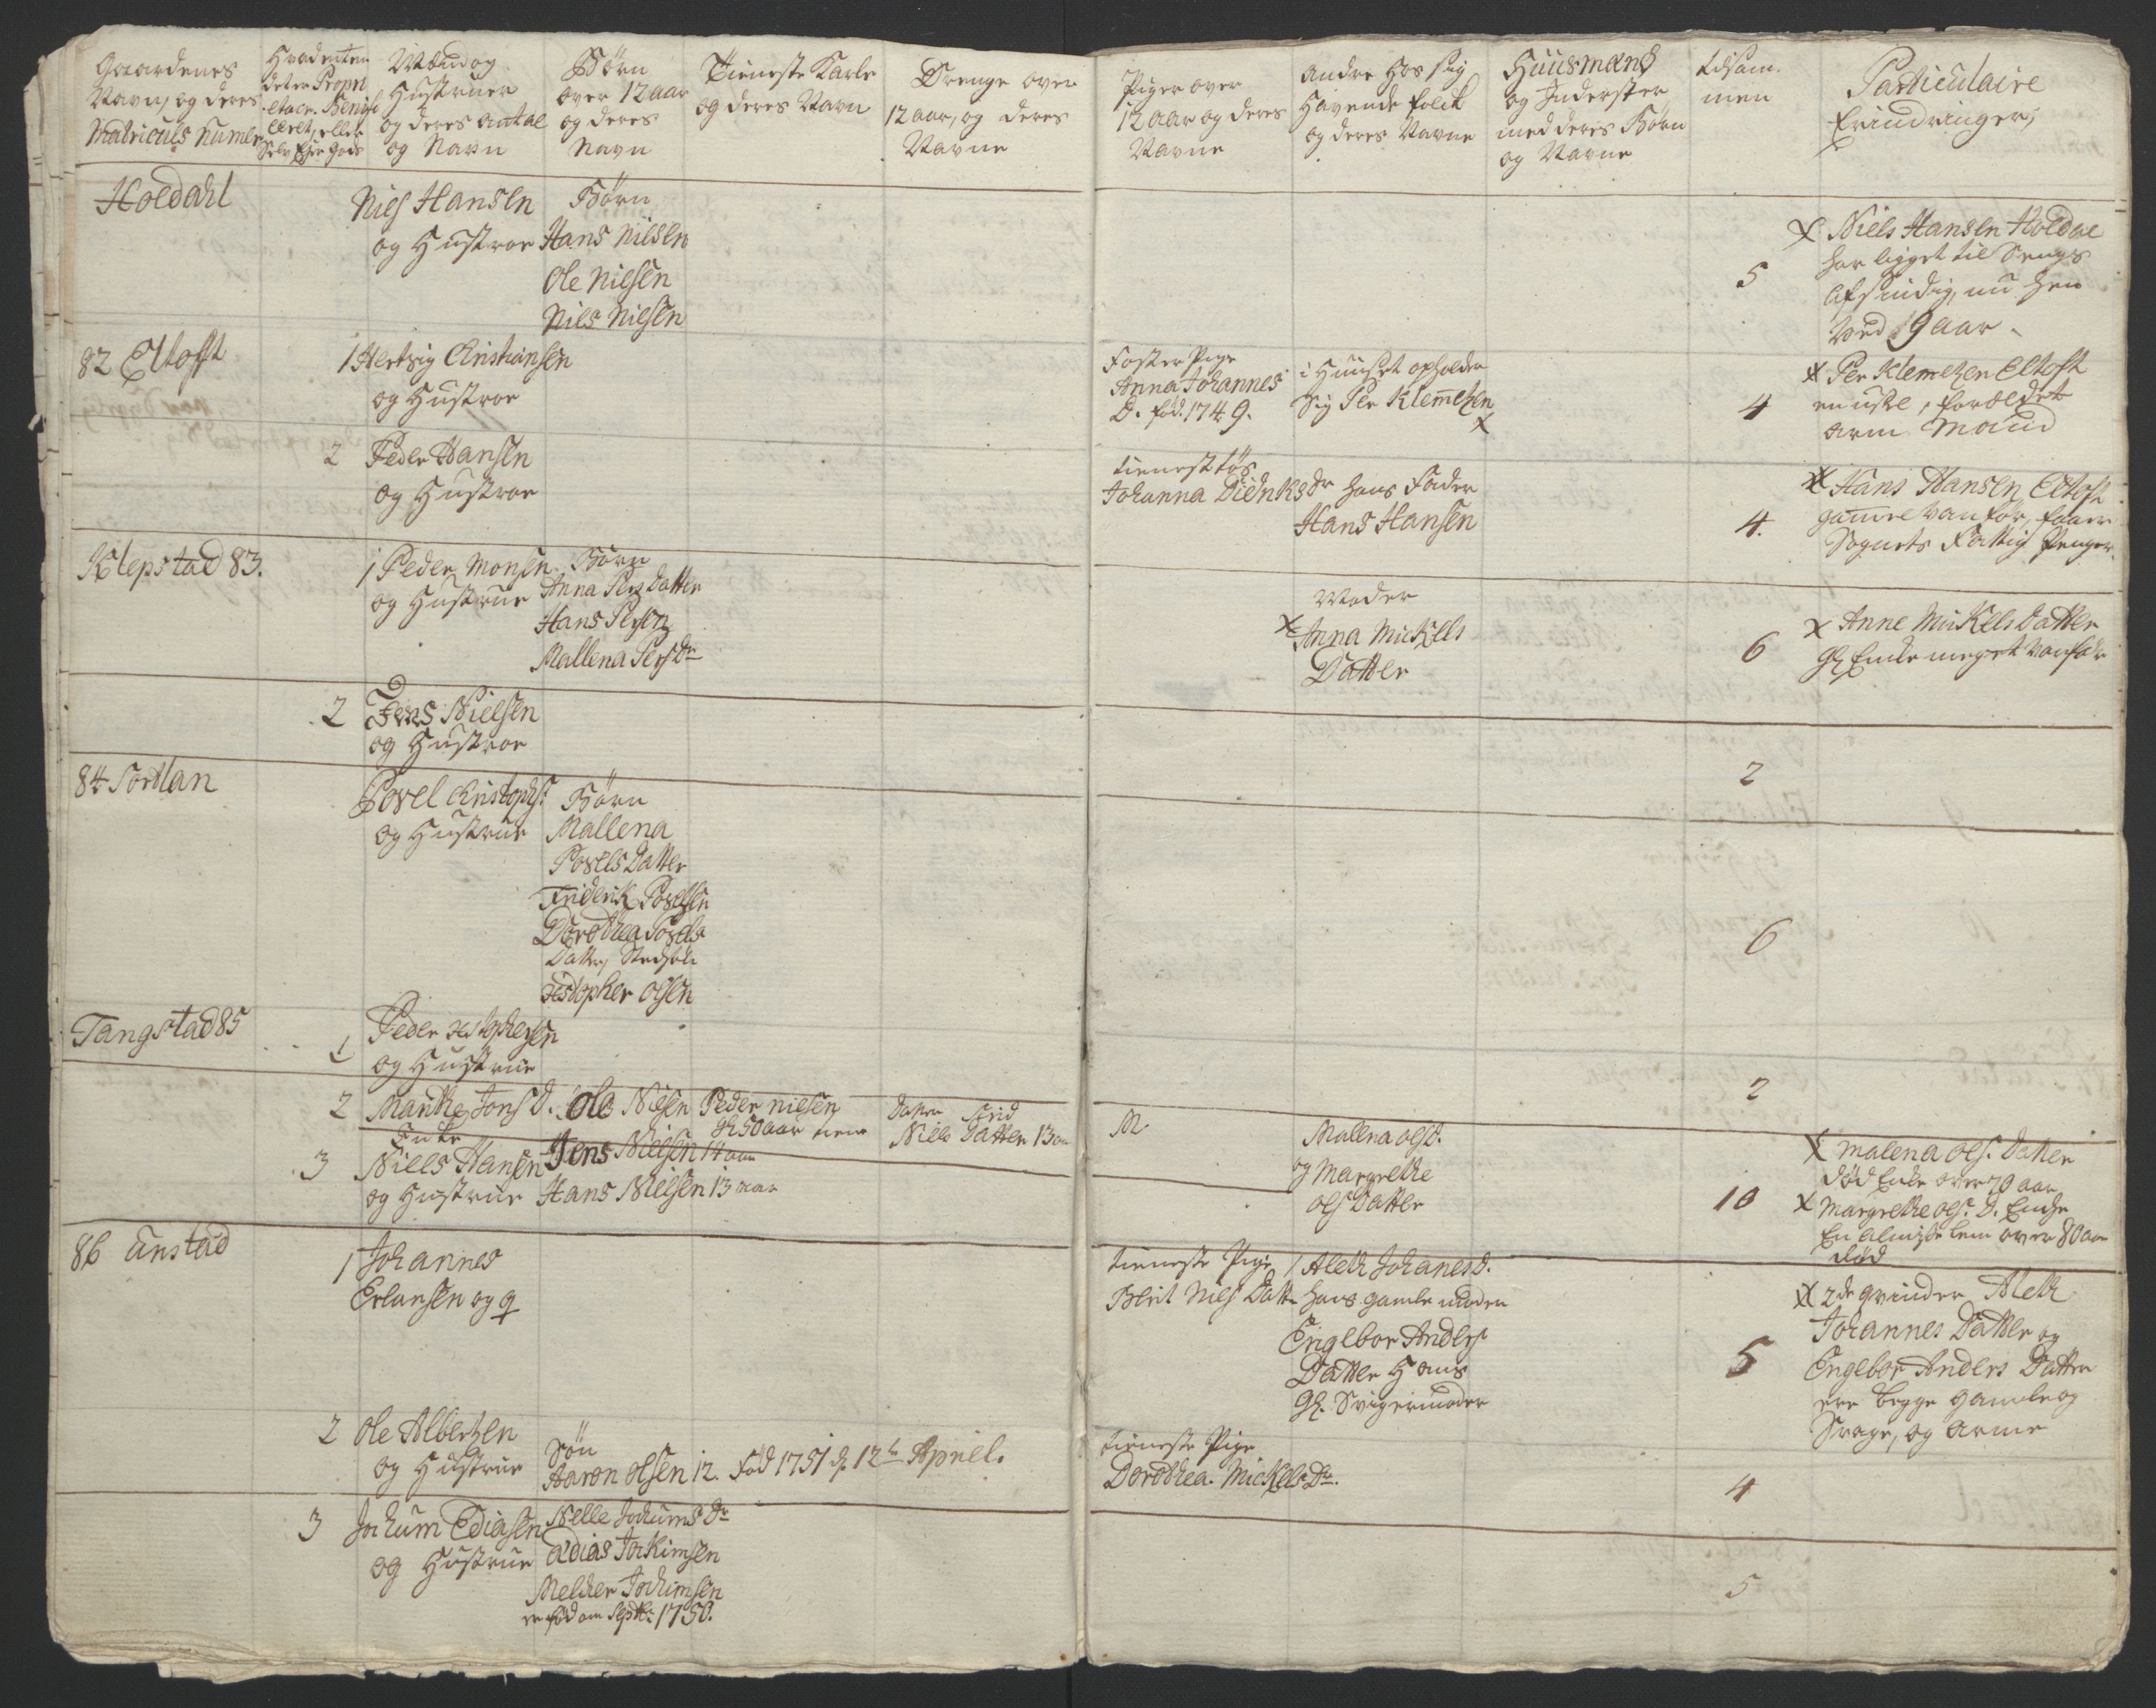 Gaardenes
Navn, og deres
Matriculs Numer
Hvad enten
det er Propri
etair. Benefi
ceret, eller
Selv Ejer Gods
Mænd og
Hustruer
og deres antal
og Navn
Börn
over 12 aar
og deres
Navn
Tieneste Karle
og deres Navn
Drenge over
12 aar, og deres
Navne
Piger over
12 aar og deres
Navne
andre hos sig
havende folck
og deres Navne
Huusmænd
og Inderster
med deres Börn
og Navne
tilsam.
men
Particulaire
Erindringer,
Holdahl
Niels Hansen
og Hustroe
Börn
Hans Nilsen
Ole Nielsen
Niels Nielsen
5
x Niels Hansen Holdal
har ligget til Sengs
afsindig, nu hen
ved 9 aar
82 Eltofft
1 Hertvig Christiansen
og Hustroe
Foster Pige
Anna Johannes
D. föd. 1749.
i Huuset opholder
sig Per Klemetzen
x
4
x Per Klemetzen Eltoft
en usel, foreldet
arm Mand
2 Peder Hansen
og Hustroe
tieneste tös
Johanna Didriks dr
hans Fader
Hans Hansen
4.
x Hans Hansen Eltoft
gamel vanför, faar
Sognets Fattig Penger
Klepstad 83.
1 Peder Monsen
og Hustrue
Börn
Anna Pers Datter
Hans Persen
Mallena Pers Dr
Moder
x Anna Mickels
Datter
6
x Anne Mickels Datter
gl Enke meget vanför
2 Jens Nielsen
og Hustroe
2
84 Sortlan
Povel Christophs.
og Hustrue
Börn
Mallena
Povels Datter
Friderik Povelsen
Dorothea Povels
Datter, Stedsön
Christopher Olsen
6
Tangstad 85
1 Peder Christophersen
og Hustrue
2
2 Marithe Jons D.
Enke
Ole Nielsen
Peder Nielsen
gl 50 aar
Datter
Niels Datter 13 aar
M.
Mallena Ols D.
og Margrethe
Ols Datter
3 Niels Hansen
og Hustrue
Jens Nielsen 14 aar
Hans Nielsen 13 aar
10
x Malena Ols. Datter
död Enke over 70 aar
x Margrethe Ols. D. Enke
En almisse lem over 80 aar
död
86 Unstad
1 Johannes
Erlansen og q
tieneste Pige
Berit Niels Datter
1 Aleth Johanes D.
hans gamle moder
Engebor Anders
Datter Hans
Gl. Svigermoder
5
x 2de qvinder Aleth
Johannes Datter og
Engebor Anders Datter
ere begge gamle og
Svage, og arme
2 Ole Albertzen
og Hustrue
Sön
Aaron Olsen 12. Föd 1751 d. 12te Apriel.
tieneste Pige
Dorothea Mickels Dr.
4
3 Jochum Ediasen
og Hustrue
Nelle Jochums Dr
Edias Jochimsen
Melcher Jochimsen
er född om Septbr: 1750.
5